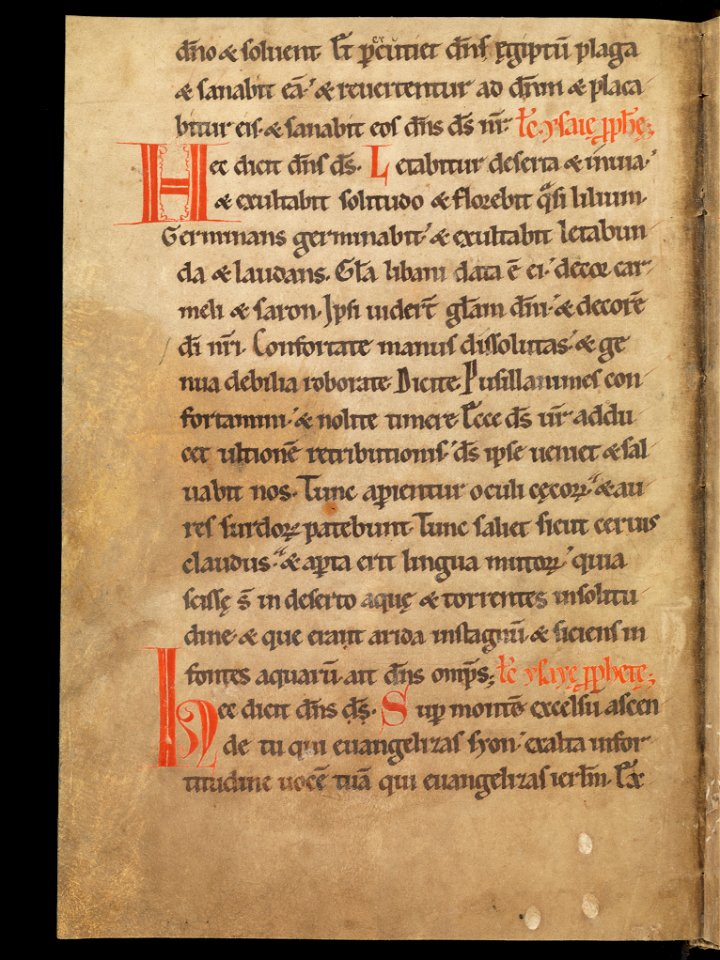 dn̄o & soluent. Et p̱cutiet dn̄s ęgiptū plaga
& sanabit eā. & reuertentur ad dn̄m & placa
bitur eis. & sanabit eos dn̄s ds̄ nr̄. Łc̄. ysaię ꝓphę;
Hec dicit dn̄s ds̄. Letabitur deserta & inuia.
& exultabit solitudo & florebit qͣsi lilium.
Germinans germinabit. & exultabit letabun
da & laudans. Gła libani data ē ei. decor car
meli & saron. Ipsi uidert̄ głam dn̄i. & decorē
dī nr̄i. Confortate manus dissolutas. & ge
nua debilia roborate. Dicite. Pusillanimes con
fortamini. & nolite timere. Ecce ds̄ ur̄ addu
cet ultionē retributionis. ds̄ ipse ueniet & sal
uabit nos. Tunc ap̱ientur oculi cęcoꝝ. & au
res surdoꝝ patebunt. Tunc saliet sicut ceruus
claudus. & ap̱ta erit lingua mutoꝝ. quia
scissę s̄ in deserto aquę & torrentes insolitu
dine. & que erant arida instagnū. & siciens in
fontes aquarū. ait dn̄s omp̄s; Łc̄ ysaye ꝓphetę;
Hec dicit dn̄s ds̄. Sup̱ montē excelsū ascen
de tu qui euangelizas syon. exalta infor
titudine uocē tuā qui euangelizas ierłm. Ex